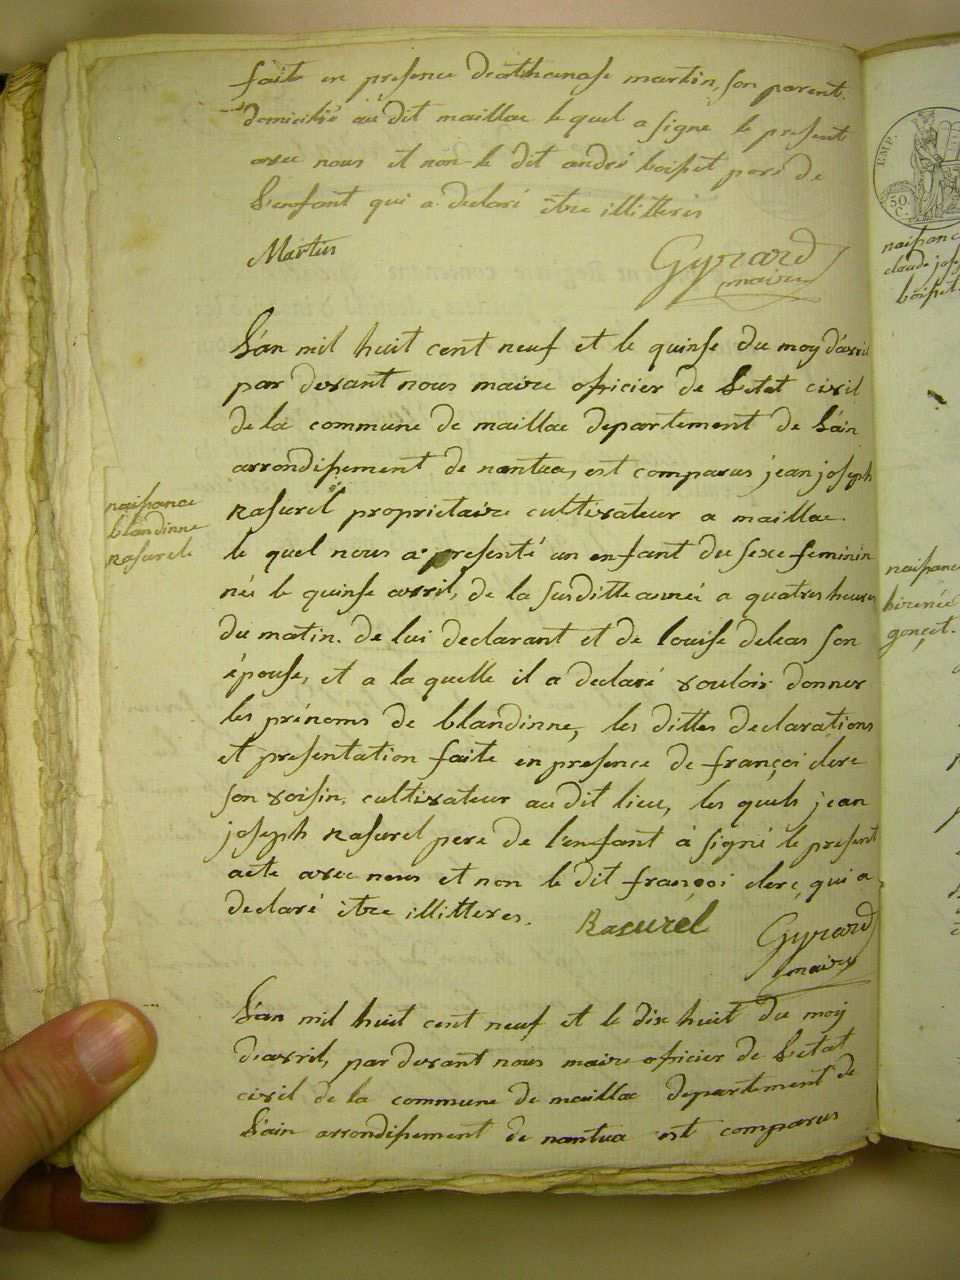 fait en presence deathanase martin, son parent.
domicilié au dit maillac le quel a signé le present
avec nous et non le dit andré boisset pere de
L'enfant qui a declaré être illitteres
Martin
Gyrard
maire
L'an mil huit cent neuf et le quinse du moy d'avril
par devant nous maire officier de L'etat civil
de la commune de maillac departement de L'ain
arrondissement de nantua, est comparus jean joseph
Rasurel proprietaire cultivateur a maillac.
le quel nous a presenté un enfant du sexe feminin
née le quinse avril, de la susditte année a quatres heures
du matin. de lui declarant et de louise deleas son
épouse, et a la quelle il a declaré vouloir donner
les prénoms de blandinne, les dittes declarations
et presentation faite en presence de françoi clerc
son voisin, cultivateur au dit lieu, les quels jean
joseph Rasurel pere de l'enfant à signé le present
acte avec nous et non le dit françoi clerc, qui a
declaré être illitteres.
Rasurel
Gyrard
maire
L'an mil huit cent neuf et le dix huit du moy
d'avril, par devant nous maire officier de L'etat
civil de la commune de maillac departement de
L'ain arrondissement de nantua est comparus
naissance
blandinne
Rasurele
EMP.
50
C.
naissance
claude jose
boisset.
naissance
gonçet.